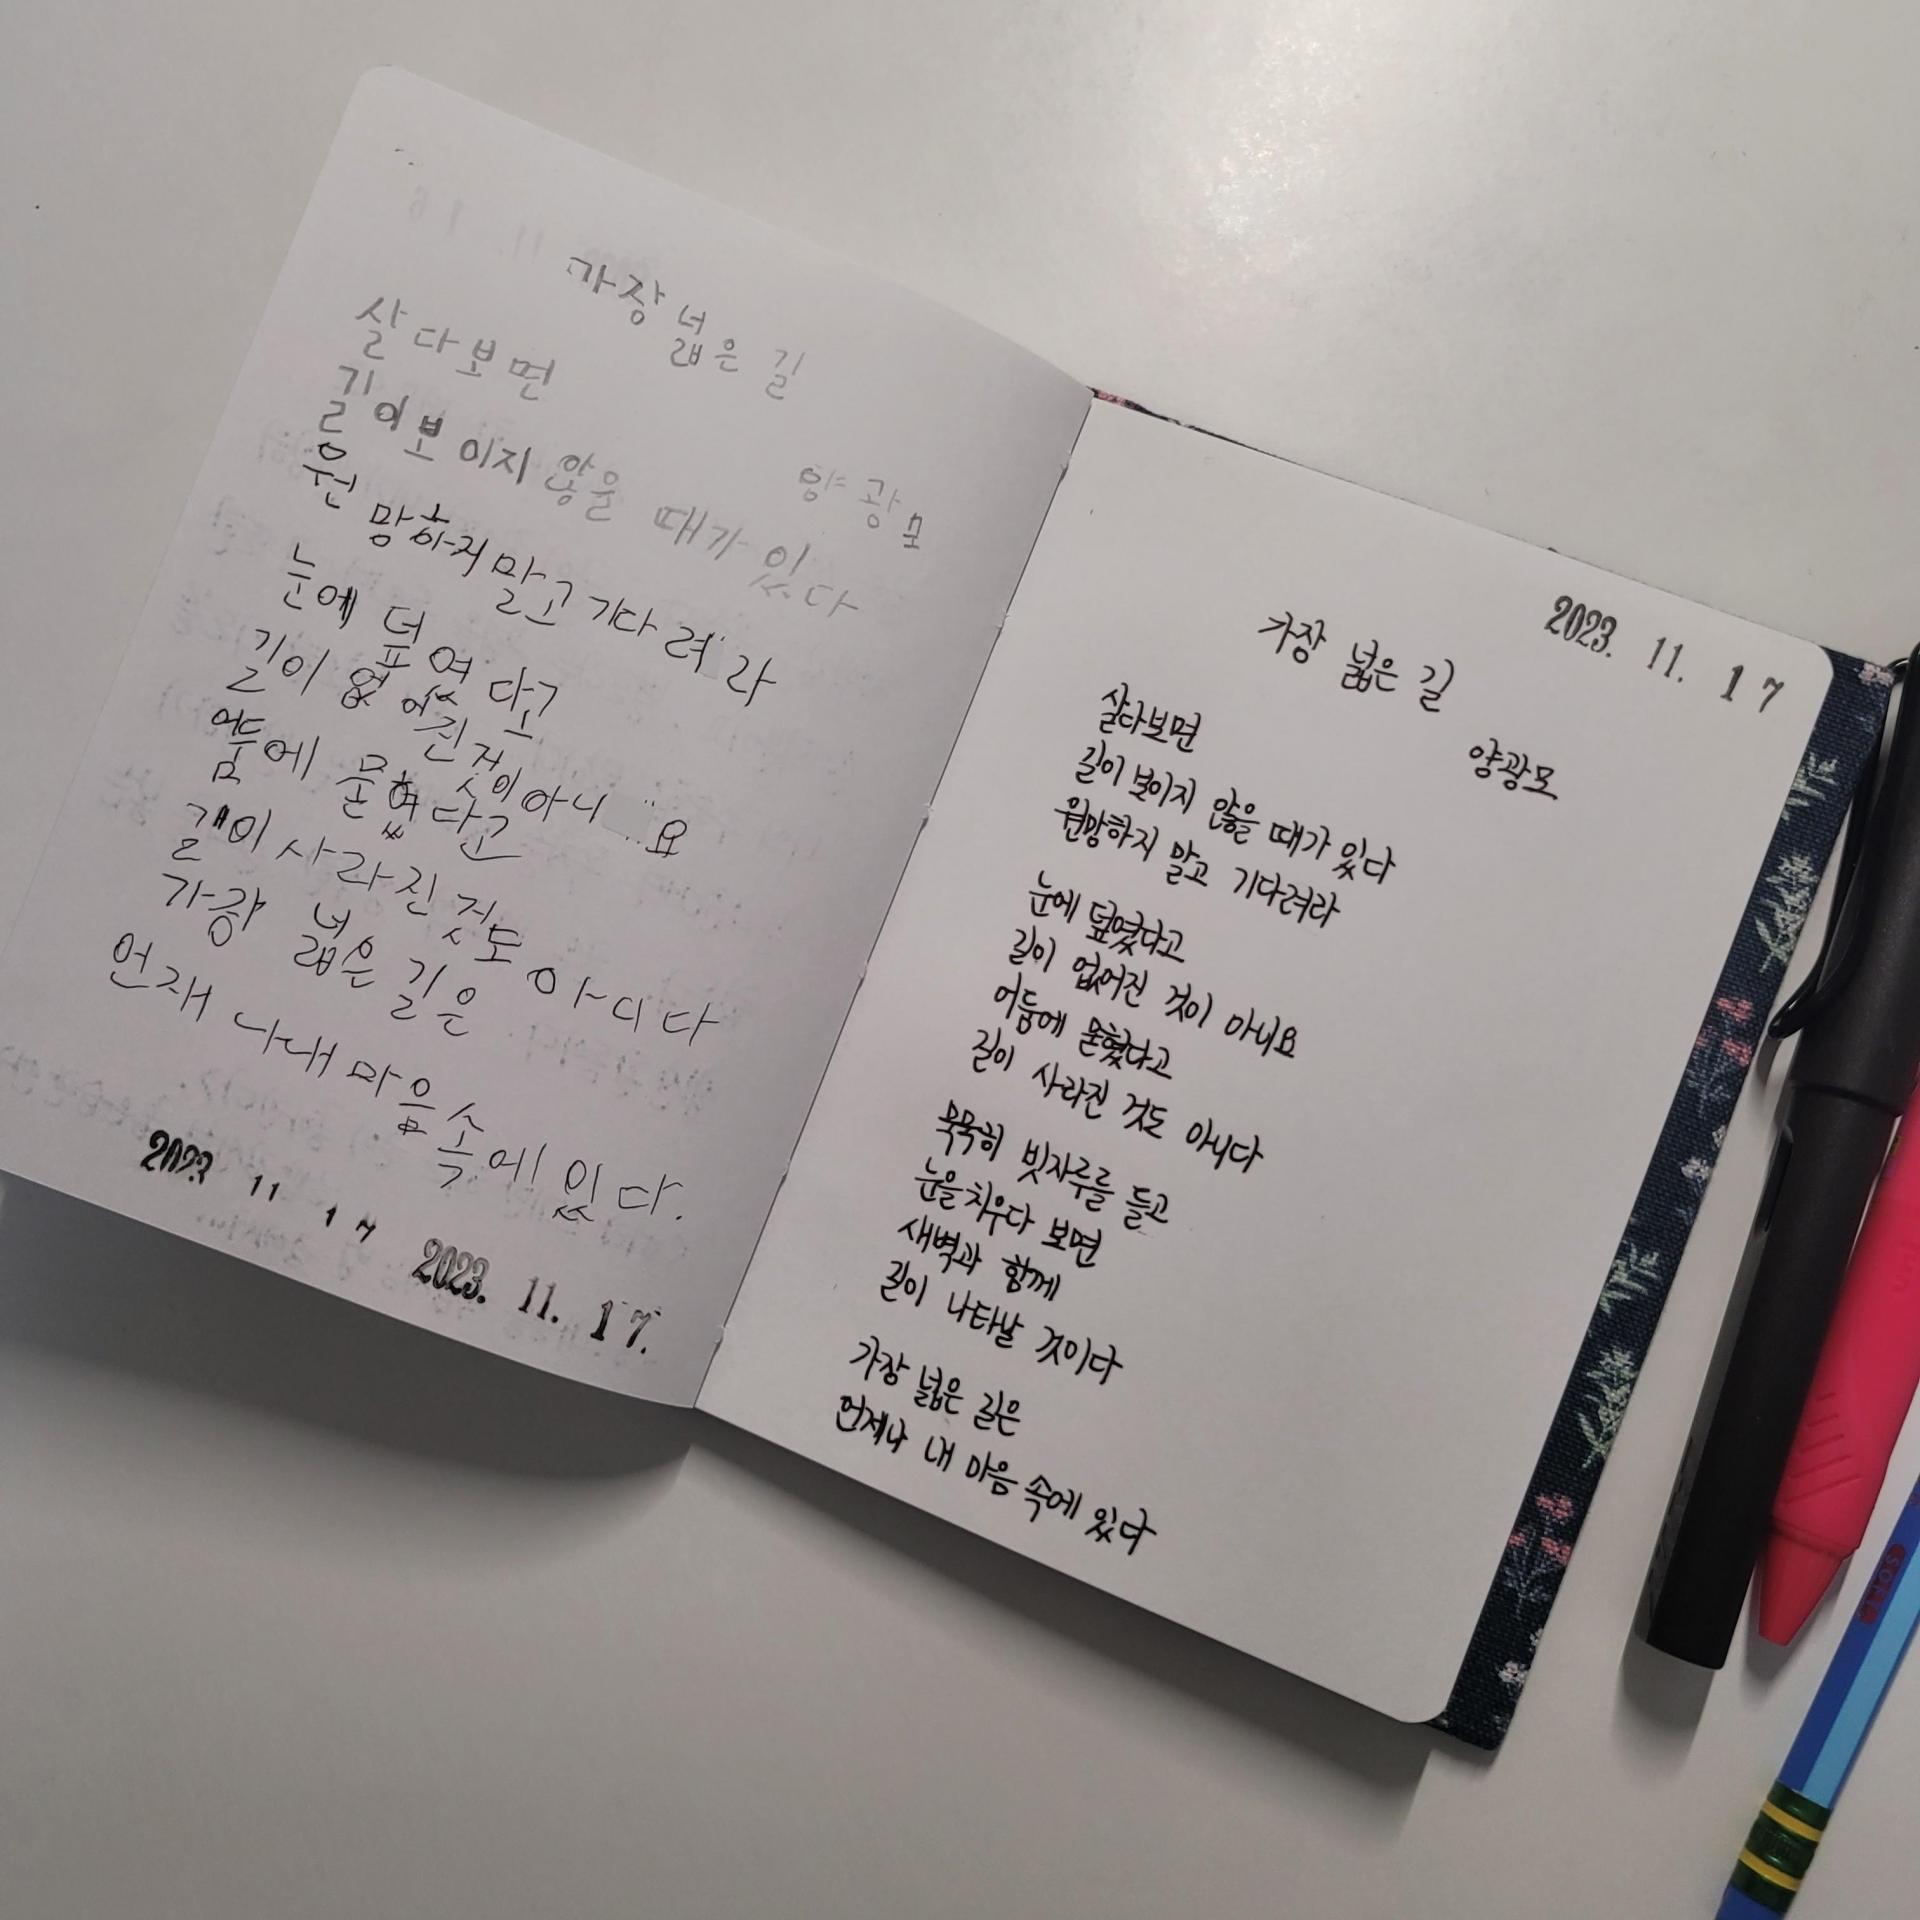 가장 넓은 길
양광모
살다보면
길이보이지 않을 때가 있다
원망하지말고 기다려라
눈에 덮였다고
길이 없어진 것이아니요
어둠에 묻혔다고
길이 사라진 것도 아니다
가장 넓은 길은
언재나내 마음속에 있다.
2023 11 17
2023. 11. 17.
2023. 11. 17
가장 넓은 길
양광모
살다보면
길이 보이지 않을 때가 있다
원망하지 말고 기다려라
눈에 덮였다고
길이 없어진 것이 아니요
어둠에 묻혔다고
길이 사라진 것도 아니다
묵묵히 빗자루를 들고
눈을 치우다 보면
새벽과 함께
길이 나타날 것이다
가장 넓은 길은
언제나 내 마음 속에 있다